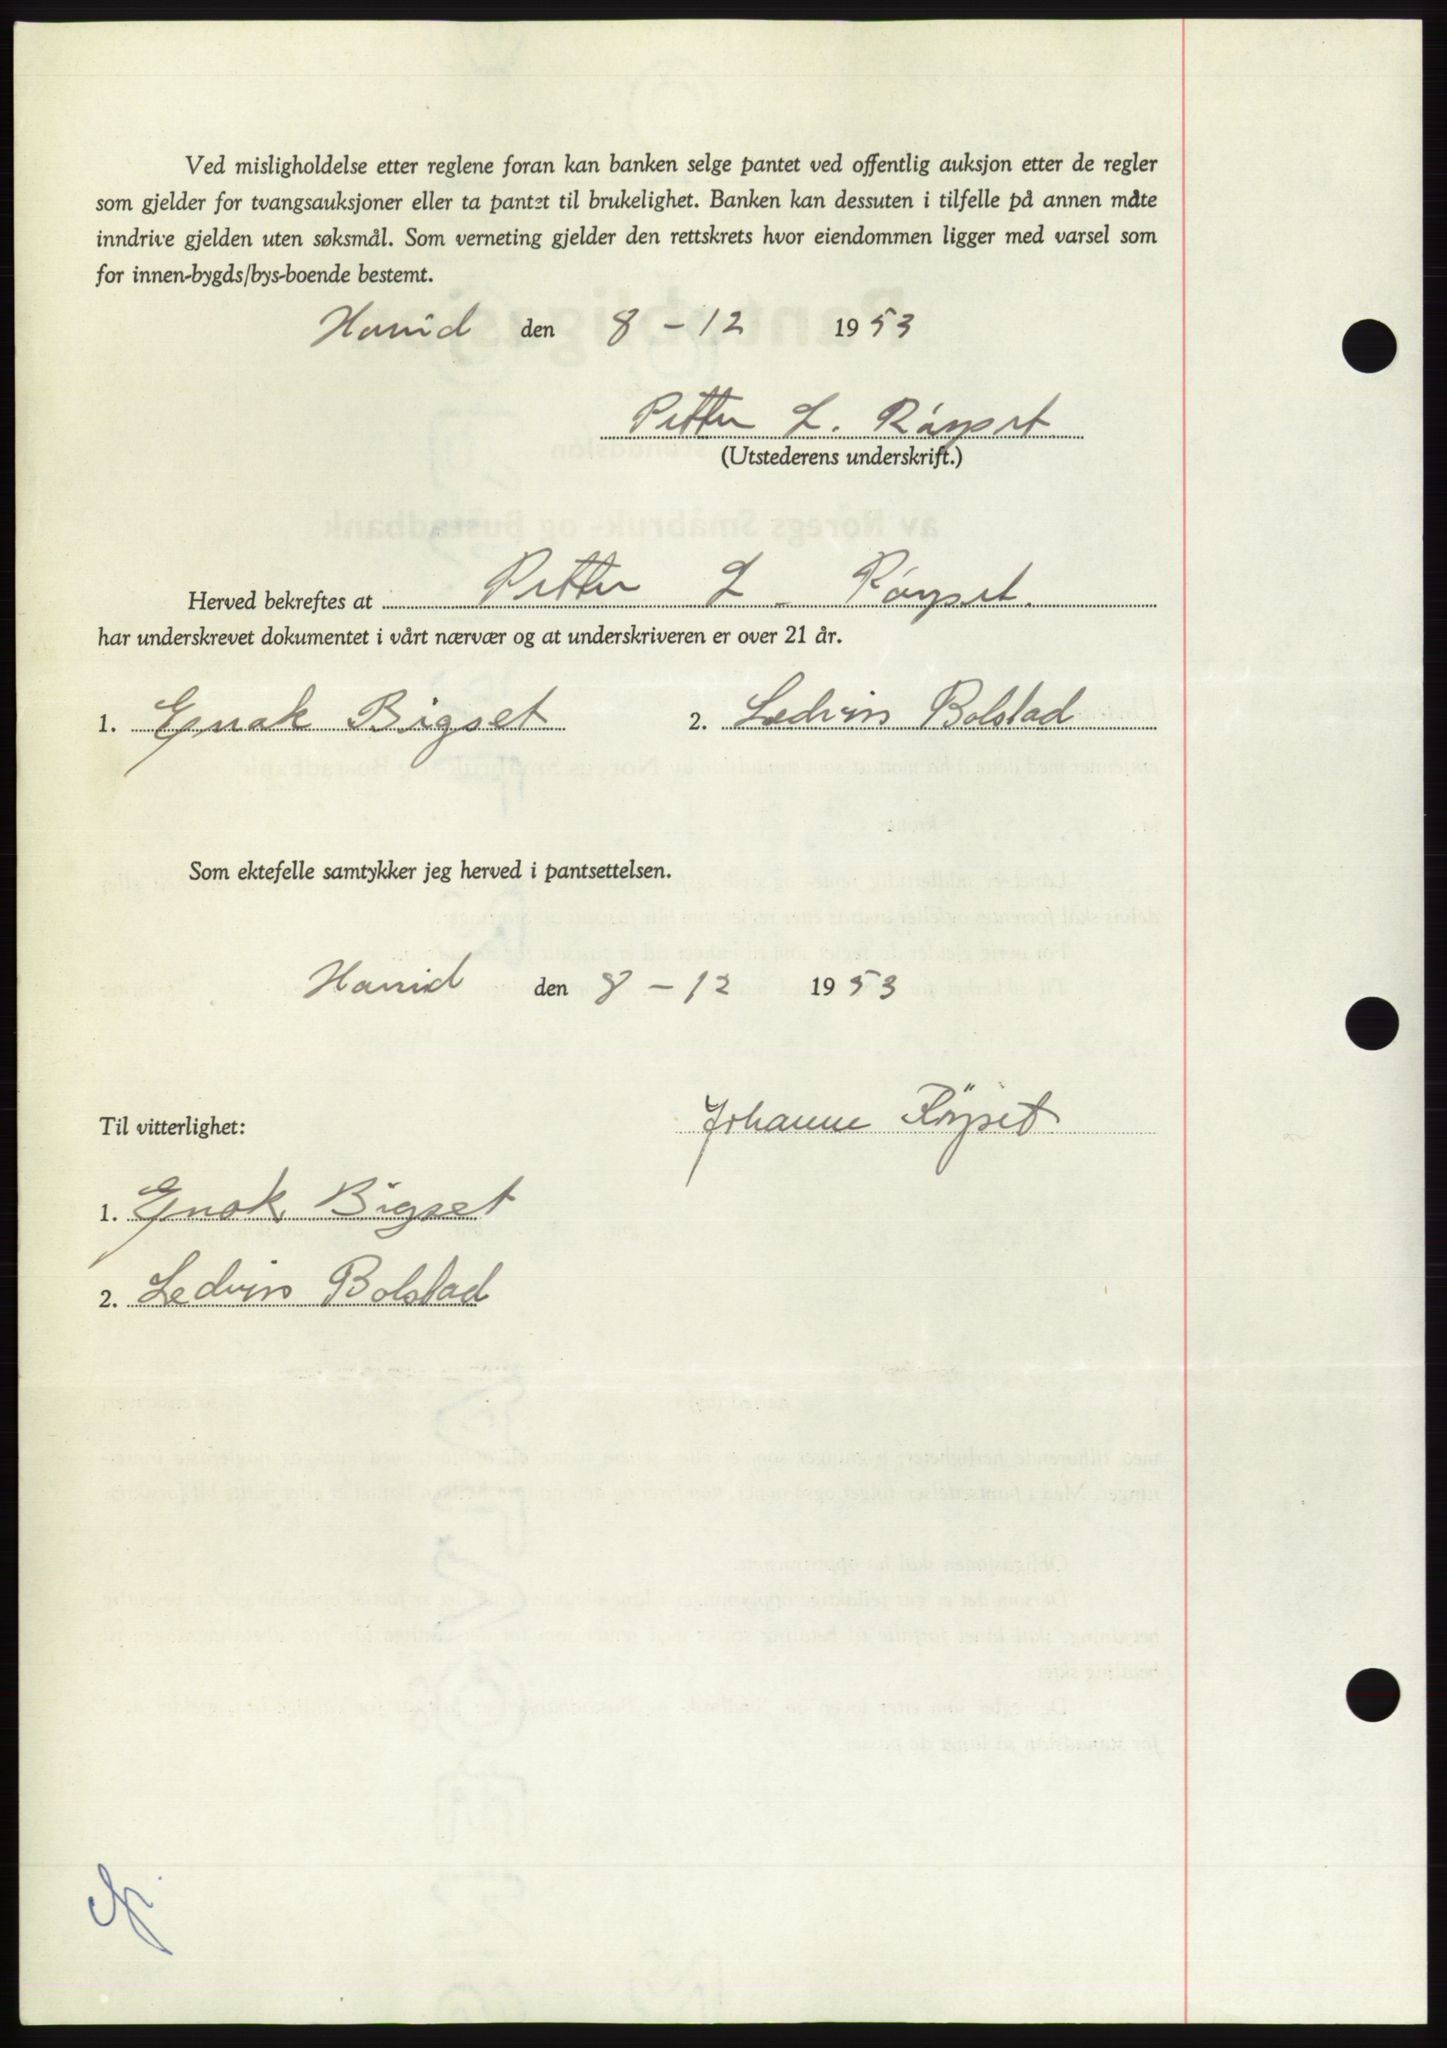 Ved misligholdelse etter reglene foran kan banken selge pantet ved offentlig auksjon etter de regler
som gjelder for tvangsauksjoner eller ta pantet til brukelighet. Banken kan dessuten i tilfelle på annen måte
inndrive gjelden uten søksmål. Som verneting gjelder den rettskrets hvor eiendommen ligger med varsel som
for innen-bygds/bys-boende bestemt.
Havid den 8 - 12 1953
Petter L. Røyset
(Utstederens underskrift.)
Herved bekreftes at Petter L. Røyset.
har underskrevet dokumentet i vårt nærvær og at underskriveren er over 21 år.
1. Enok Bigset 2. Ledvin Bolstad
Som ektefelle samtykker jeg herved i pantsettelsen.
Havid den 8 - 12 1953
Til vitterlighet: Johanne Röyset
1. Enok Bigset
2. Ledvin Bolstad